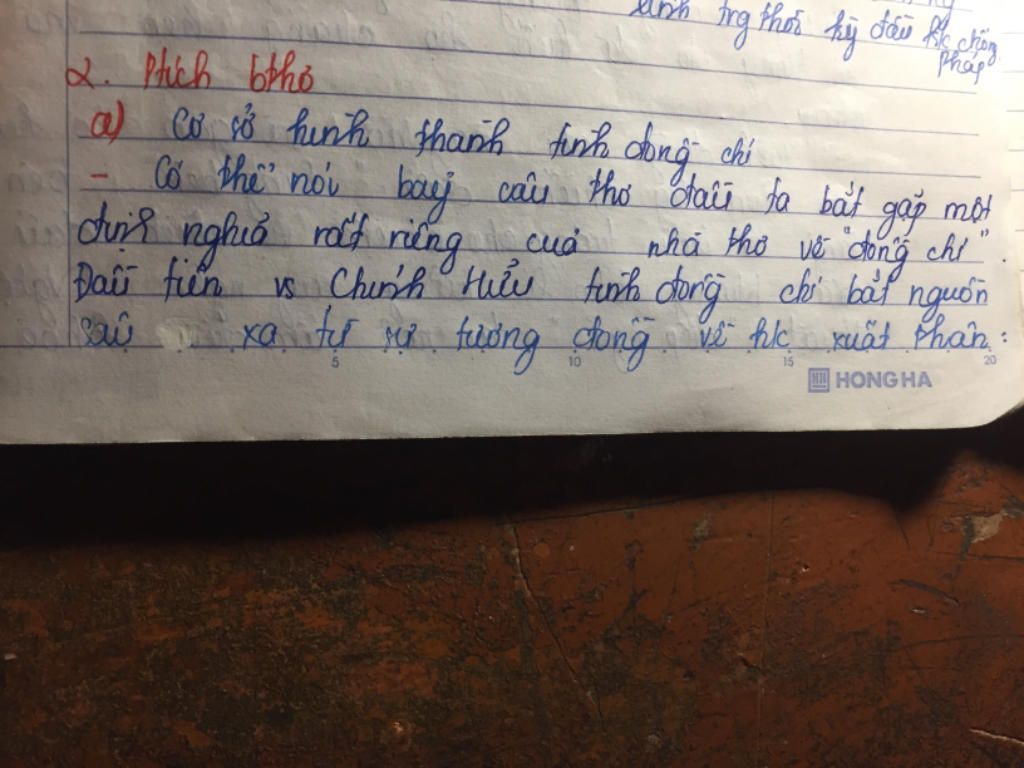 trg thời kỳ đầu kc chống
Pháp
2. Ptích bthơ
a) Cơ sở hình thành tình đồng chí
- Có thể nói bảy câu thơ đầu ta bắt gặp một
định nghĩa rất riêng của nhà thơ về "đồng chí".
Đầu tiên vs Chính Hữu tình đồng chí bắt nguồn
sâu xa từ sự tương đồng về hc xuất thân:
5 10 15 20
HONG HA